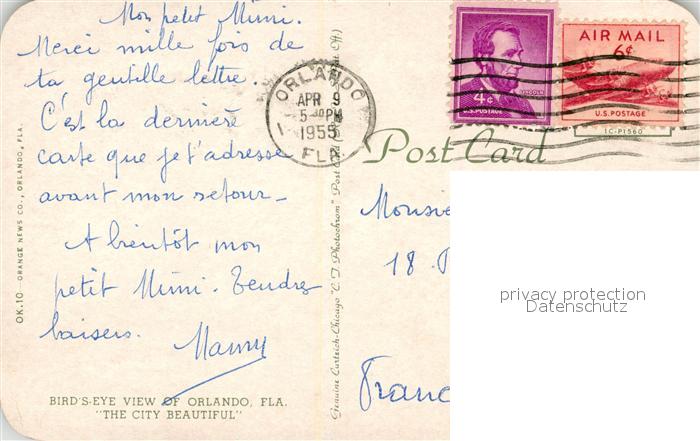 Mon petit Mimi.
Merci mille fois de
ta gentille lettre.
C'est la dernière
carte que je t'adresse
avant mon retour_
A bientôt mon
petit Mimi. Tendres
baisers.
OK.10 ORANGE NEWS CO., ORLANDO, FLA.
BIRD'S-EYE VIEW OF ORLANDO, FLA.
"THE CITY BEAUTIFUL"
ORLANDO
APR 9
5- PM
1955
FLA.
Genuine Curteich-Chicago "C.T. Photochrom" Post Card
LINCOLN
4¢
U.S. POSTAGE
AIR MAIL
6¢
U.S. POSTAGE
1C-P1560
Post Card
18
privacy protection
Datenschutz